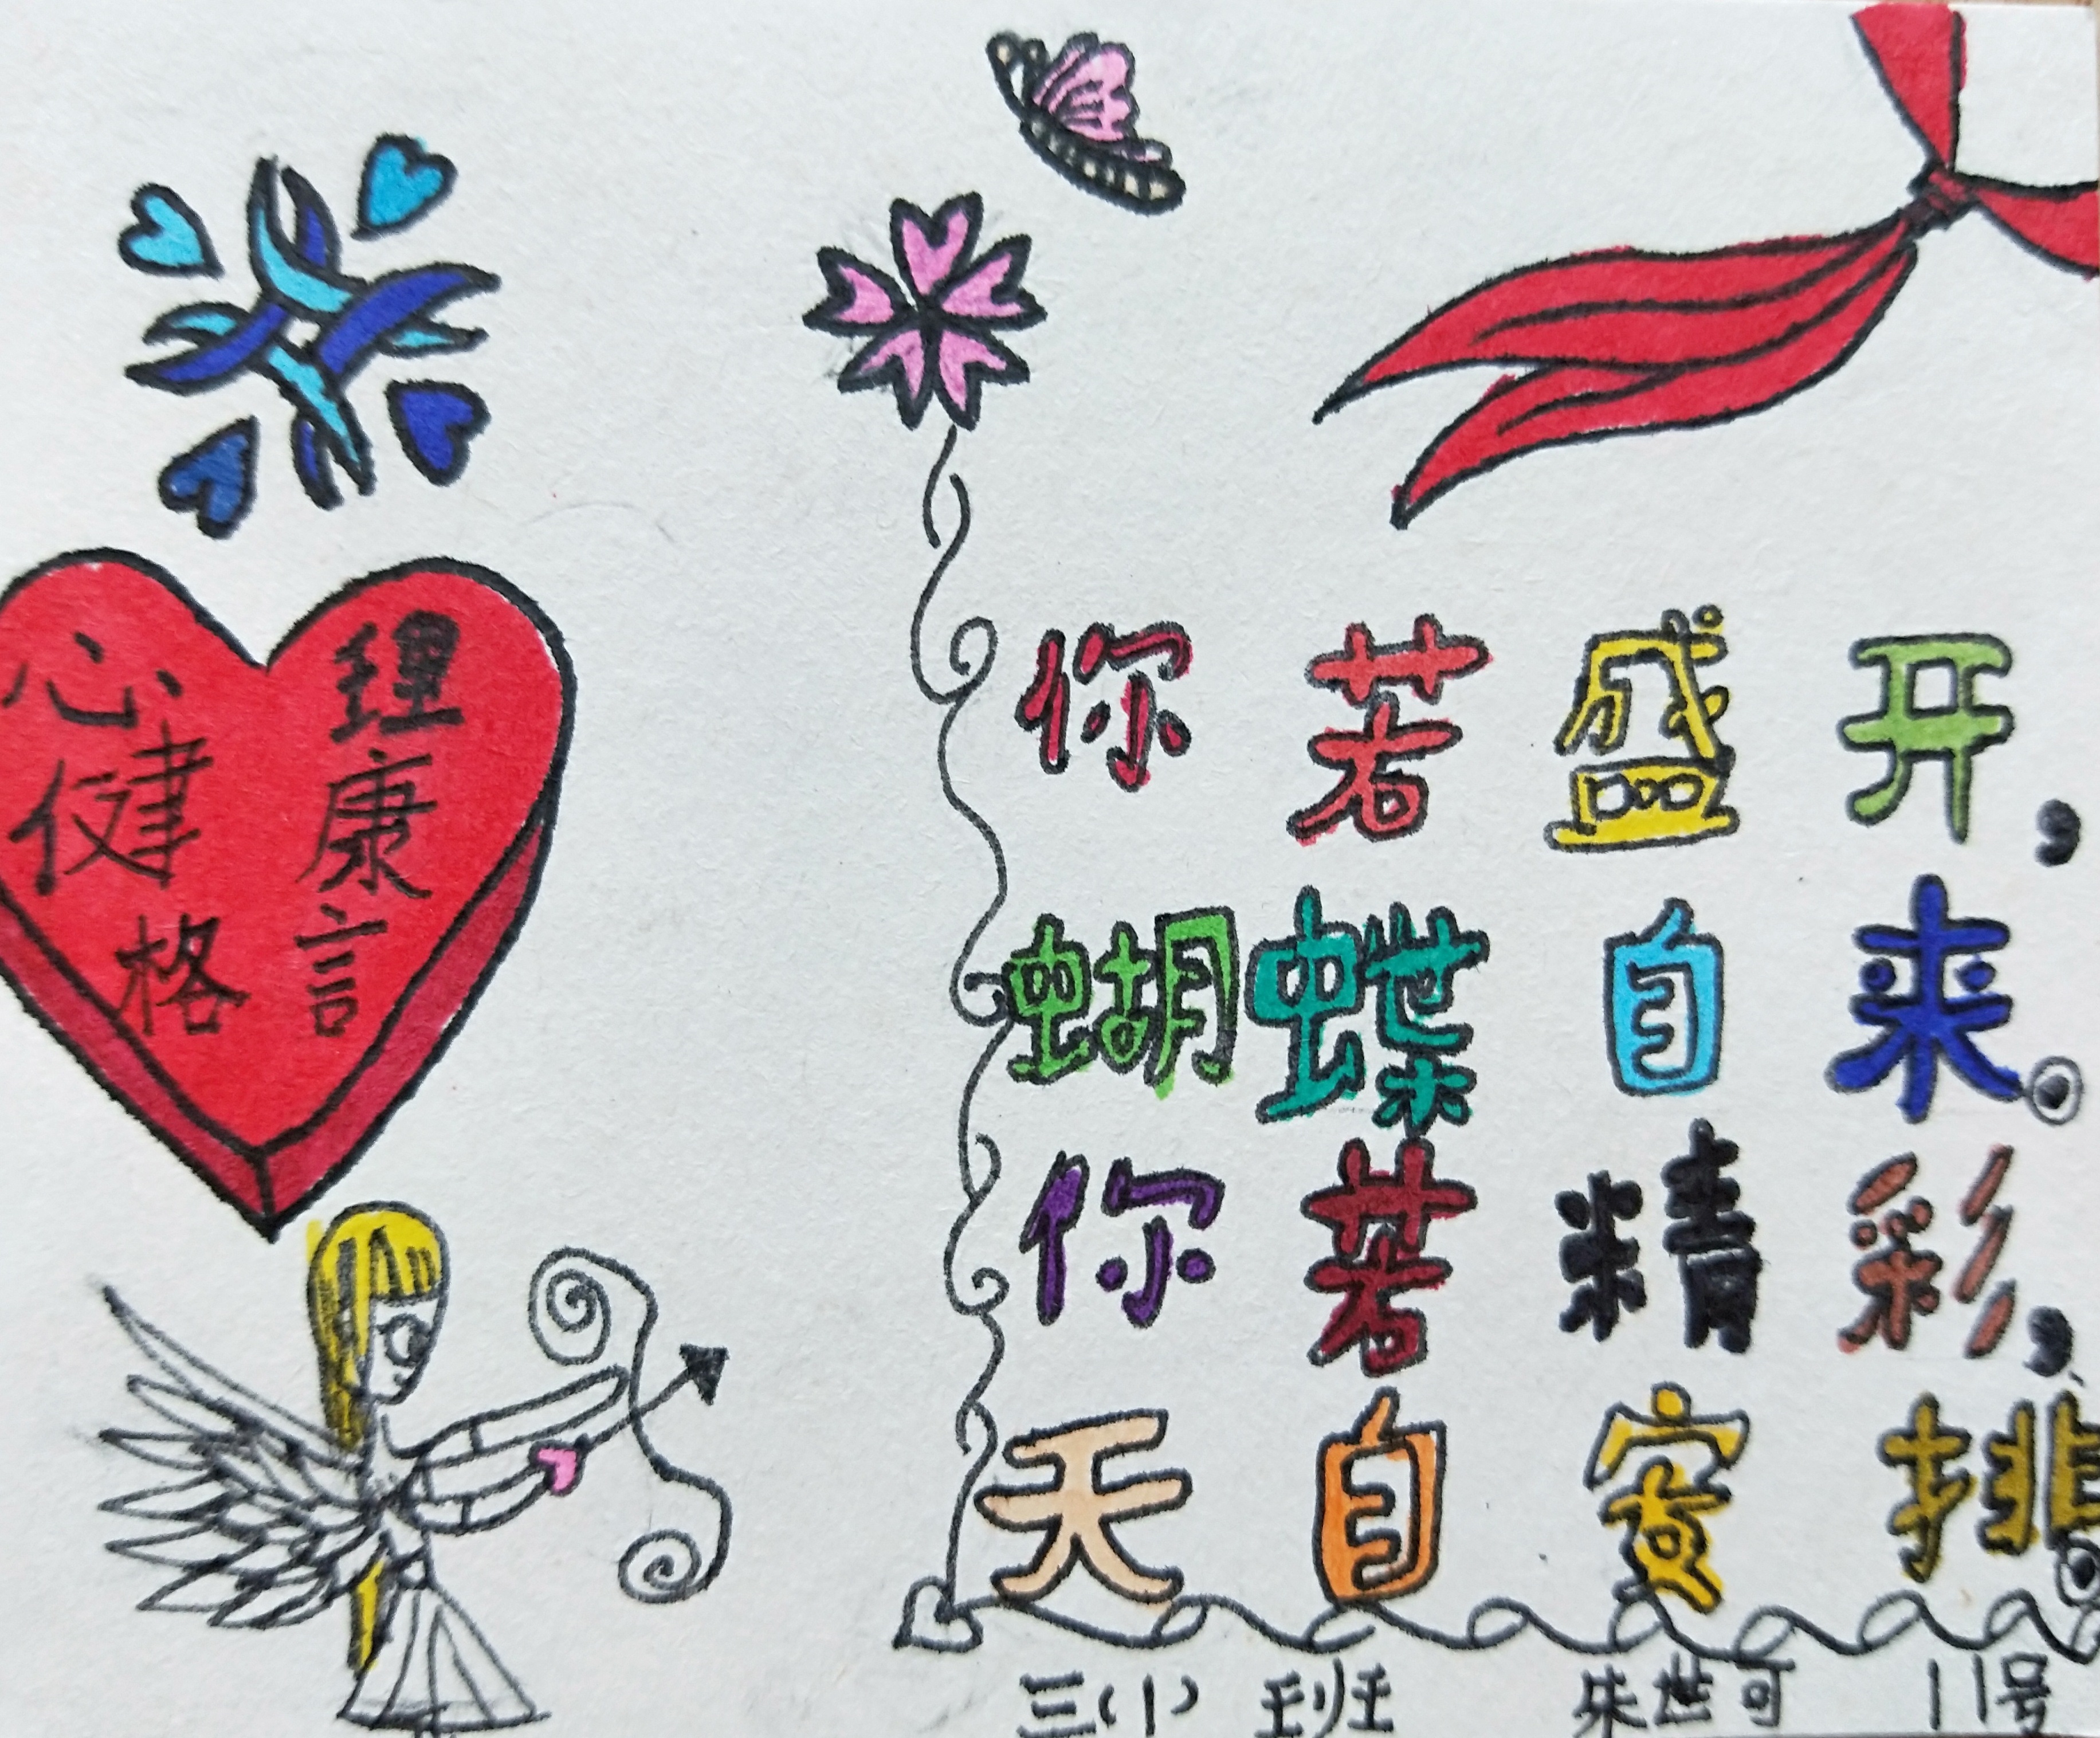 心理
健康
格言
你若盛开，
蝴蝶自来。
你若精彩，
天自安排。
三（1）班 朱世可 11号